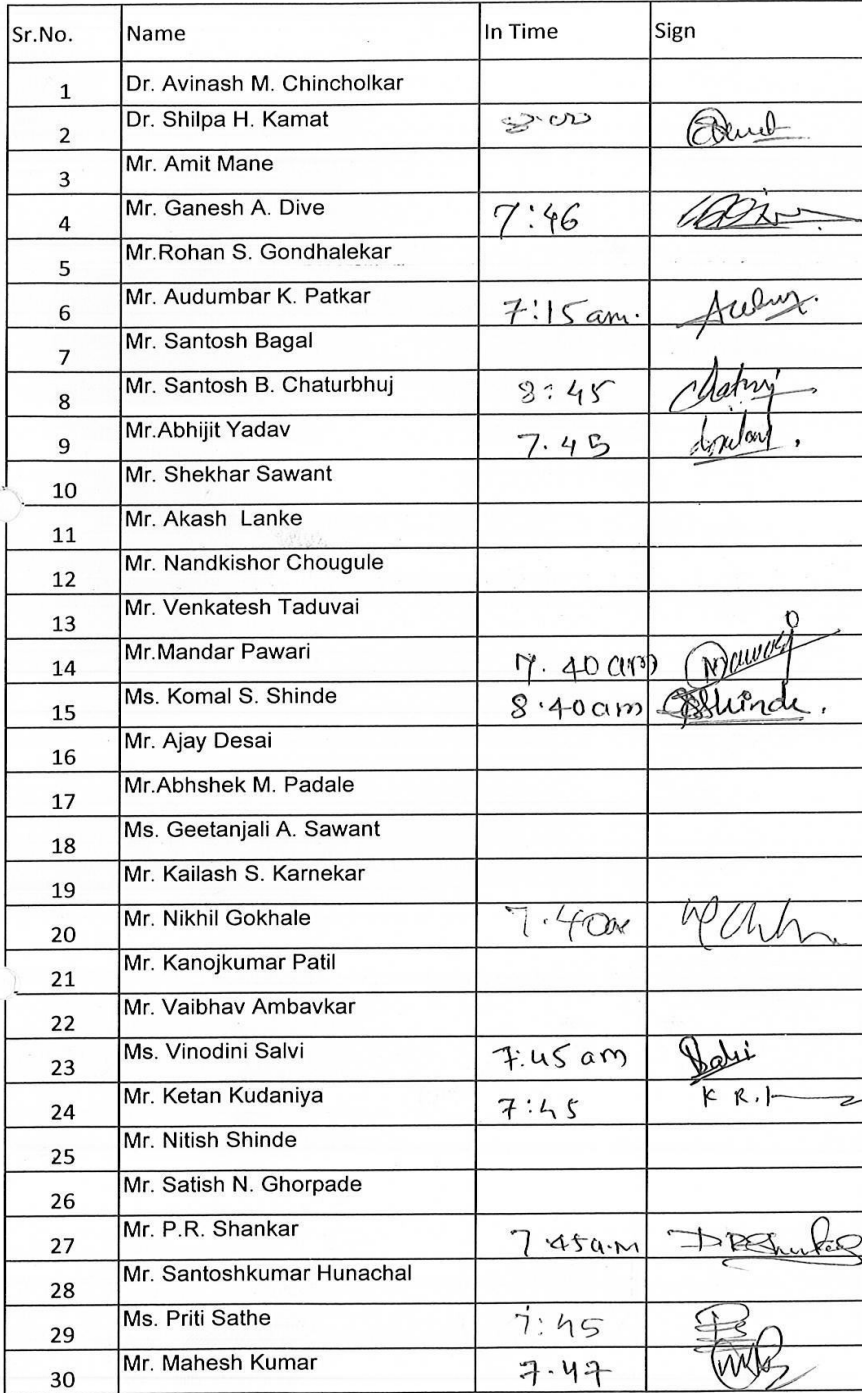 Sr.No. Name In Time Sign
1 Dr. Avinash M. Chincholkar
2 Dr. Shilpa H. Kamat 8.00
3 Mr. Amit Mane
4 Mr. Ganesh A. Dive 7:46
5 Mr.Rohan S. Gondhalekar
6 Mr. Audumbar K. Patkar 7:15 am.
7 Mr. Santosh Bagal
8 Mr. Santosh B. Chaturbhuj 8:45
9 Mr.Abhijit Yadav 7.45
10 Mr. Shekhar Sawant
11 Mr. Akash Lanke
12 Mr. Nandkishor Chougule
13 Mr. Venkatesh Taduvai
14 Mr.Mandar Pawari 7.40 am
15 Ms. Komal S. Shinde 8.40am Shinde.
16 Mr. Ajay Desai
17 Mr.Abhshek M. Padale
18 Ms. Geetanjali A. Sawant
19 Mr. Kailash S. Karnekar
20 Mr. Nikhil Gokhale 7.40
21 Mr. Kanojkumar Patil
22 Mr. Vaibhav Ambavkar
23 Ms. Vinodini Salvi 7:45 am
24 Mr. Ketan Kudaniya 7:45 K R.
25 Mr. Nitish Shinde
26 Mr. Satish N. Ghorpade
27 Mr. P.R. Shankar 7.45a.m
28 Mr. Santoshkumar Hunachal
29 Ms. Priti Sathe 7:45
30 Mr. Mahesh Kumar 7.47